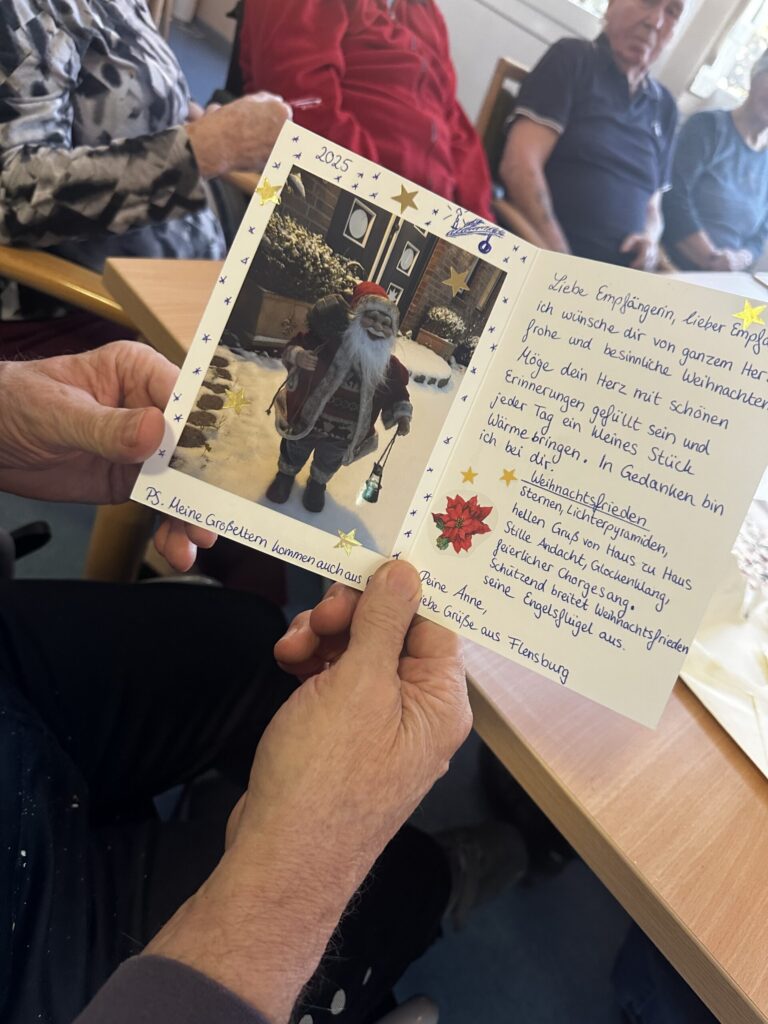 2025
PS. Meine Großeltern kommen auch aus
Liebe Empfängerin, lieber
ich wünsche dir von ganzem
frohe und besinnliche Weihnachten
Möge dein Herz mit schönen
Erinnerungen gefüllt sein und
jeder Tag ein kleines Stück
Wärme bringen. In Gedanken bin
ich bei dir.
Weihnachtsfrieden
Sternen, Lichterpyramiden,
hellen Gruß von Haus zu Haus
Stille Andacht, Glockenklang,
feierlicher Chorgesang.
Schützend breitet Weihnachtsfrieden
seine Engelsflügel aus.
Deine Anne,
liebe Grüße aus Flensburg